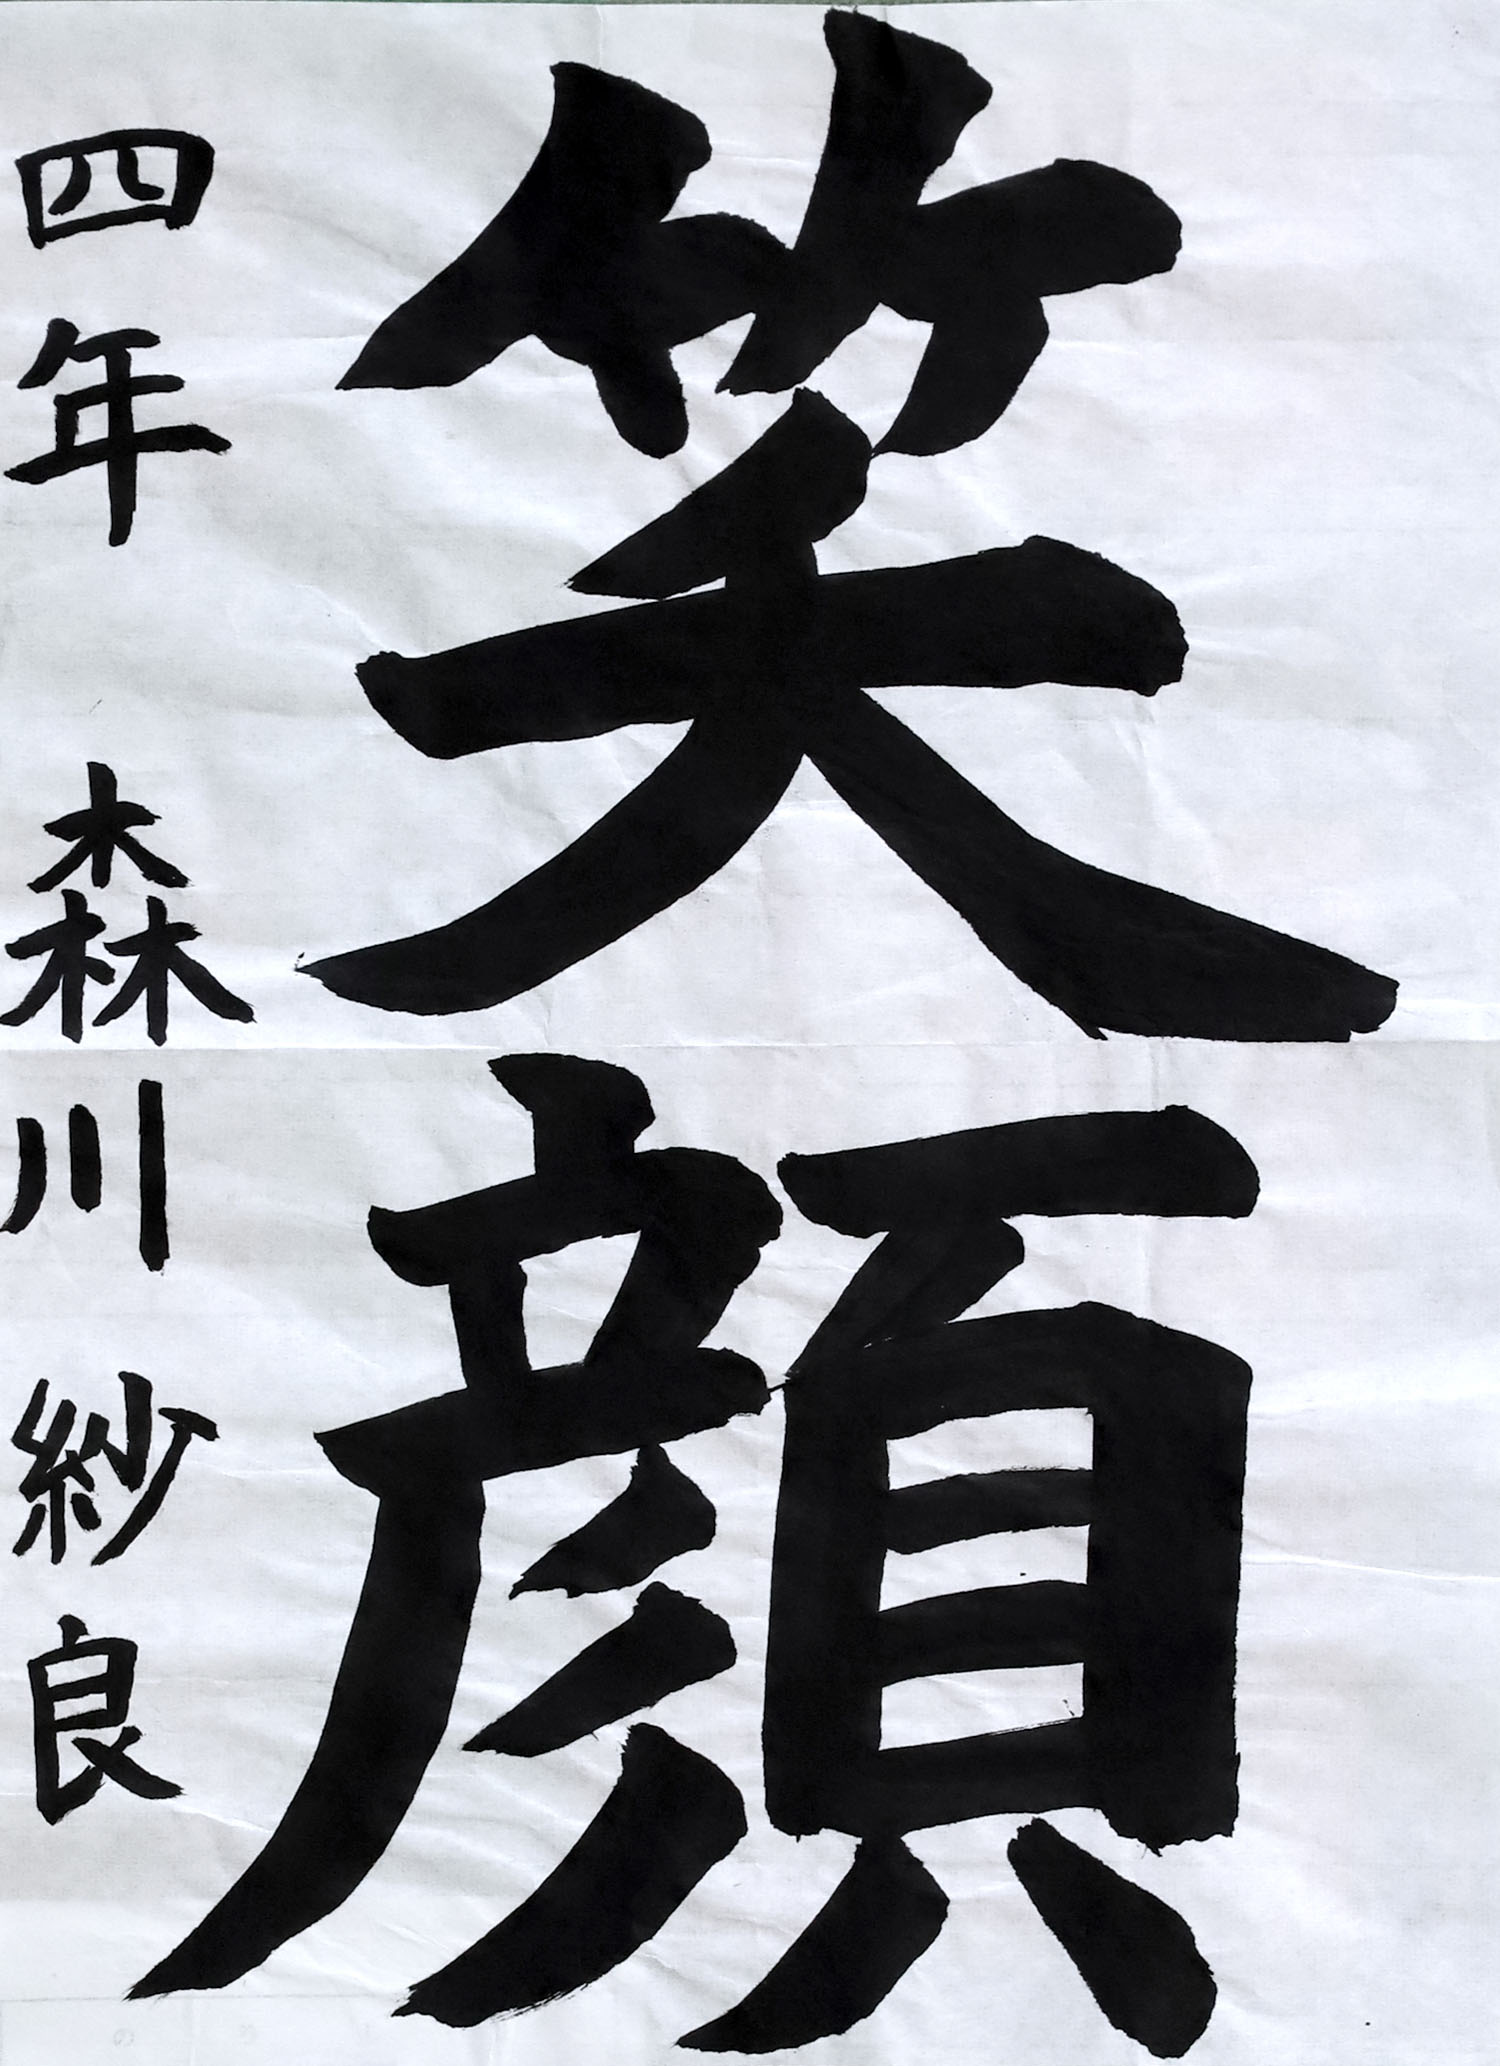 笑顔
四年 森川紗良